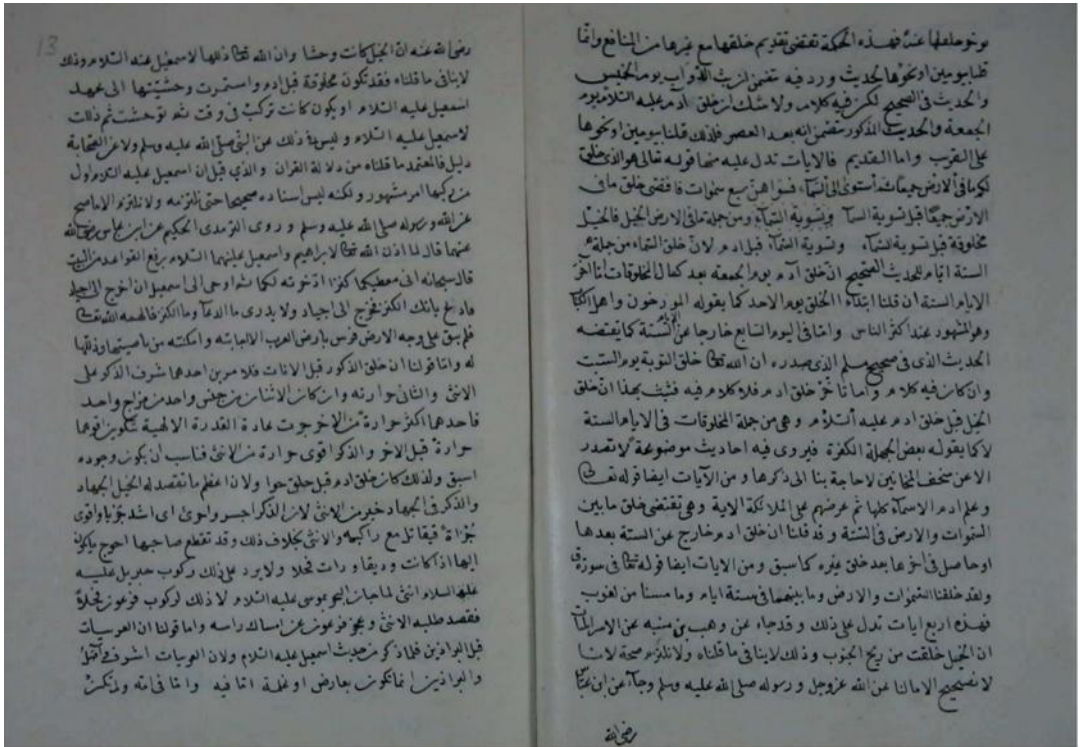 نوخو ملعلها عنه فهذه الحكمة تقتضى تقديم خلقها مع غيرها من المنافع وانما
قلنا بيومين او نحوها لحديث ورد فيه يتضمن ان بث الدواب يوم الخميس
والحديث فى الصحيح لكن فيه كلام ولا شك ان خلق ادم عليه السلام يوم
الجمعة والحديث المذكور يتضمن انه بعد العصر فلذلك قلنا بيومين او نحوها
على التقريب واما التقديم فالايات تدل عليه منها قوله تعالى هو الذى خلق
لكم ما فى الارض جميعا ثم استوى الى السماء فسواهن سبع سموات فاقتضى خلق ما فى
الارض جميعا قبل تسوية السماء وتسوية السماء ومن جملة ما فى الارض الخيل فالخيل
مخلوقة قبل تسوية السماء وتسوية السماء قبل ادم لان خلق السماء من جملة
الستة ايام للحديث الصحيح ان خلق آدم يوم الجمعة بعد كمال المخلوقات اما آخر
الايام الستة ان قلنا ابتداء الخلق يوم الاحد كما يقوله المورخون واهل الكتاب
وهو المشهور عند اكثر الناس واما فى اليوم السابع خارجا عن الايام الستة كما يقتضيه
الحديث الذى فى صحيح مسلم الذى صدره ان الله تعالى خلق التربة يوم السبت
وان كان فيه كلام واما تاخر خلق ادم فلا كلام فيه فثبت بهذا ان خلق
الخيل قبل خلق ادم عليه السلام وهى من جملة المخلوقات فى الايام الستة
لا كما يقوله بعض الجهلة الكفرة فيروى فيه احاديث موضوعة لا تصدر
الا عن سخف المجانين لا حاجة بنا الى ذكرها ومن الآيات ايضا قوله تعالى
وعلم ادم الاسماء كلها ثم عرضهم على الملائكة الاية وهى تقتضى خلق ما بين
السموات والارض فى الستة وقد قلنا ان خلق ادم خارج عن الستة بعدها
او حاصل فى آخرها بعد خلق غيره كما سبق ومن الايات ايضا قوله تعالى فى سورة ق
ولقد خلقنا السموات والارض وما بينهما فى ستة ايام وما مسنا من لغوب
فهذه اربع ايات تدل على ذلك وقد جاء عن وهب بن منبه عن الاسرائيليات
ان الخيل خلقت من ريح الجنوب وذلك لا ينافى ما قلناه ولا نلتزم صحة لاننا
لا نصحح الا ما لنا عن الله عز وجل ورسوله صلى الله عليه وسلم وجاء عن ابن عباس
رضى الله
13
رضى الله عنه ان الخيل كانت وحشا وان الله تعالى ذللها لاسمعيل عليه السلام وذلك
لا ينافى ما قلناه فقد تكون مخلوقة قبل ادم واستمرت وحشيتها الى عهد
اسمعيل عليه السلام او يكون كانت تركب فى وقت ثم توحشت ثم ذللت
لاسمعيل عليه السلام وليس فى ذلك عن النبى صلى الله عليه وسلم ولا عن الصحابة
دليل فالمعتمد ما قلناه من دلالة القران والذى قيل ان اسمعيل عليه السلام اول
من ركبها امر مشهور ولكنه ليس اسناده صحيحا حتى نلتزمه ولا نلتزم الا ما صح
عن الله ورسوله صلى الله عليه وسلم وروى الترمذى الحكيم عن ابن عباس رضى الله
عنهما قال لما اذن الله تعالى لابراهيم واسمعيل عليهما السلام برفع القواعد من البيت
قال سبحانه انى معطيكما كنزا ادخرته لكما ثم اوحى الى اسمعيل ان اخرج الى اجياد
فادع ياتك الكنز فخرج الى اجياد ولا يدرى ما الدعاء وما الكنز فالهمه الله تعالى
فلم يبق على وجه الارض فرس بارض العرب الا اجابته وامكنته من ناصيتها وذللها
له واما قولنا ان خلق الذكور قبل الاناث فلامرين احدهما شرف الذكر على
الانثى والثانى حرارته وان كان الاثنان من جنس واحد من مزاج واحد
فاحدهما اكثر حرارة من الاخر جرت عادة القدرة الالهية بتكوين اقواهما
حرارة قبل الاخر والذكر اقوى حرارة من الانثى فناسب ان يكون وجوده
اسبق ولذلك كان خلق ادم قبل خلق حوا ولان اعظم ما تقصد له الخيل الجهاد
والذكر فى الجهاد خير من الانثى لان الذكر اجسر واجرئ اى اشد جريا واقوى
جراة فيقاتل مع راكبه والانثى بخلاف ذلك وقد تقطع صاحبها احوج ما يكون
اليها اذا كانت وديقا ورات فحلا ولا يرد على ذلك ركوب جبريل عليه
عليه السلام انثى لما جاز البحر موسى عليه السلام لان ذلك لركوب فرعون فحلا
فقصد طلبه الانثى وعجز فرعون عن امساك راسه واما قولنا ان العربيات
قبل البراذين فلما ذكر من حديث اسمعيل عليه السلام ولان العربيات اشرف واصل
والبراذين انما تكون بعارض او علة اما فيه واما فى امه ولم تكن